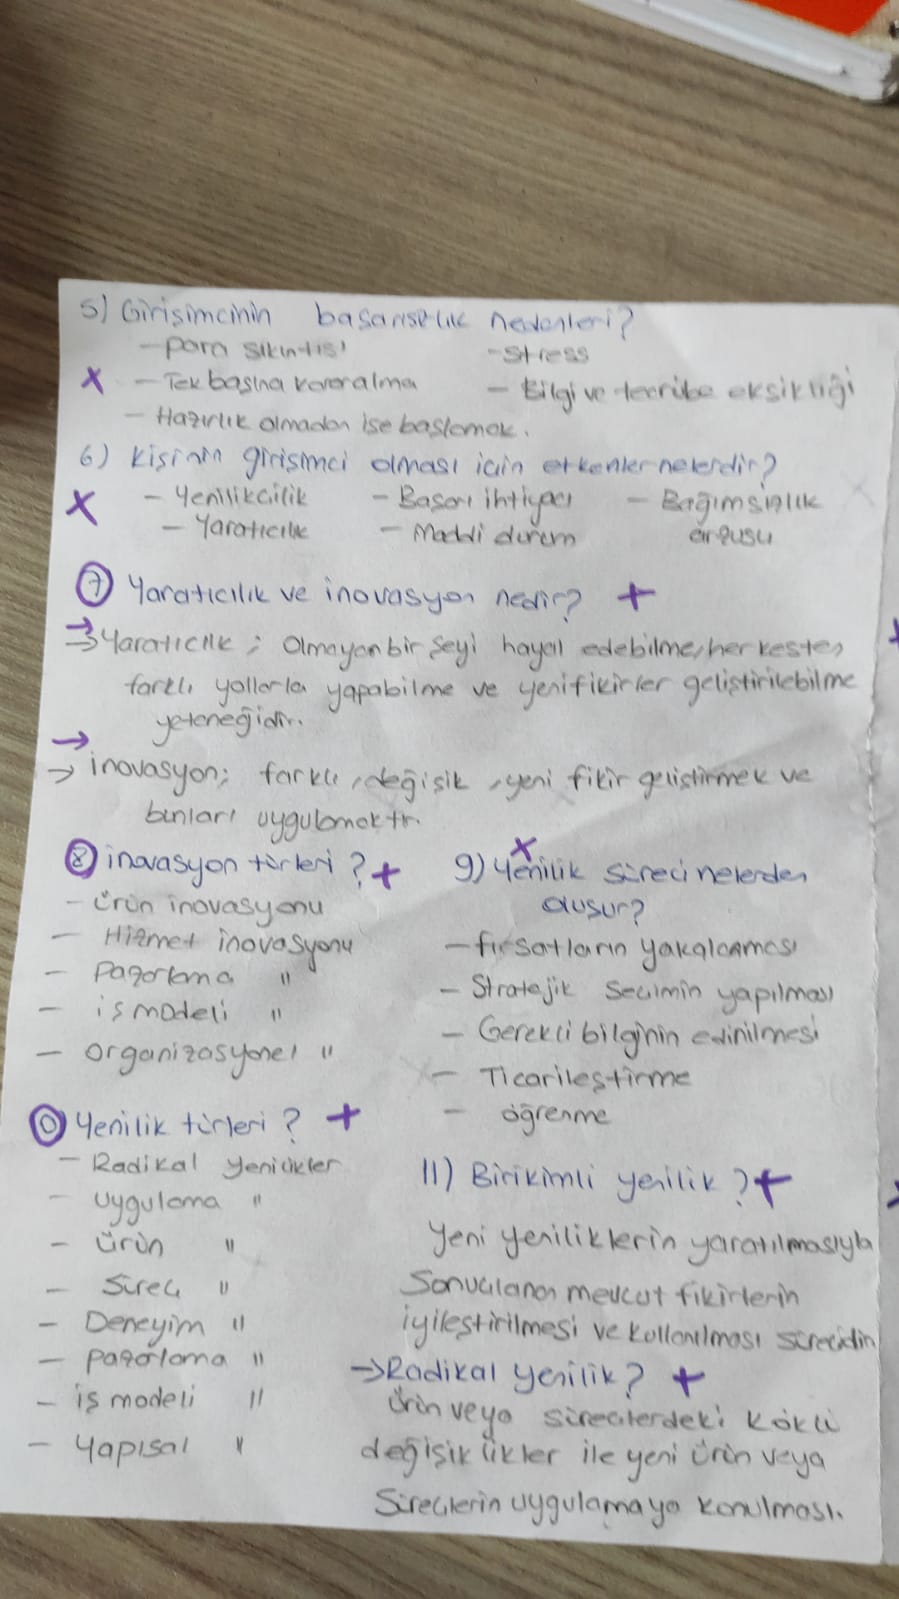 5) Girişimcinin başarısızlık nedenleri?
- para sıkıntısı - Stress
X - Tek başına karar alma - Bilgi ve tecrübe eksikliği
- Hazırlık olmadan işe başlamak.
6) Kişinin girişimci olması için etkenler nelerdir?
X - Yenilikcilik - Başarı ihtiyacı - Bağımsızlık
- Yaratıcılık - Maddi durum arzusu
7 Yaratıcılık ve inovasyon nedir? +
→ Yaratıcılık ; Olmayan bir şeyi hayal edebilme, herkesten
farklı yollarla yapabilme ve yeni fikirler geliştirilebilme
yeteneğidir.
→ inovasyon; farklı, değişik, yeni fikir geliştirmek ve
bunları uygulamaktır.
8 inovasyon türleri ? +
- Ürün inovasyonu
- Hizmet inovasyonu
- Pazarlama "
- iş modeli "
- organizasyonel "
9) X Yenilik süreci nelerden
oluşur?
- fırsatların yakalanması
- Stratejik seçimin yapılması
- Gerekli bilginin edinilmesi
- Ticarileştirme
- öğrenme
0 Yenilik türleri ? +
- Radikal yenilikler
- uygulama "
- ürün "
- Süreç "
- Deneyim "
- pazarlama "
- iş modeli "
- Yapısal "
11) Birikimli yenilik ? +
Yeni yeniliklerin yaratılmasıyla
Sonuçlanan mevcut fikirlerin
iyileştirilmesi ve kullanılması sürecidir
→ Radikal yenilik? +
Ürün veya süreçlerdeki köklü
değişiklikler ile yeni ürün veya
Süreçlerin uygulamaya konulması.